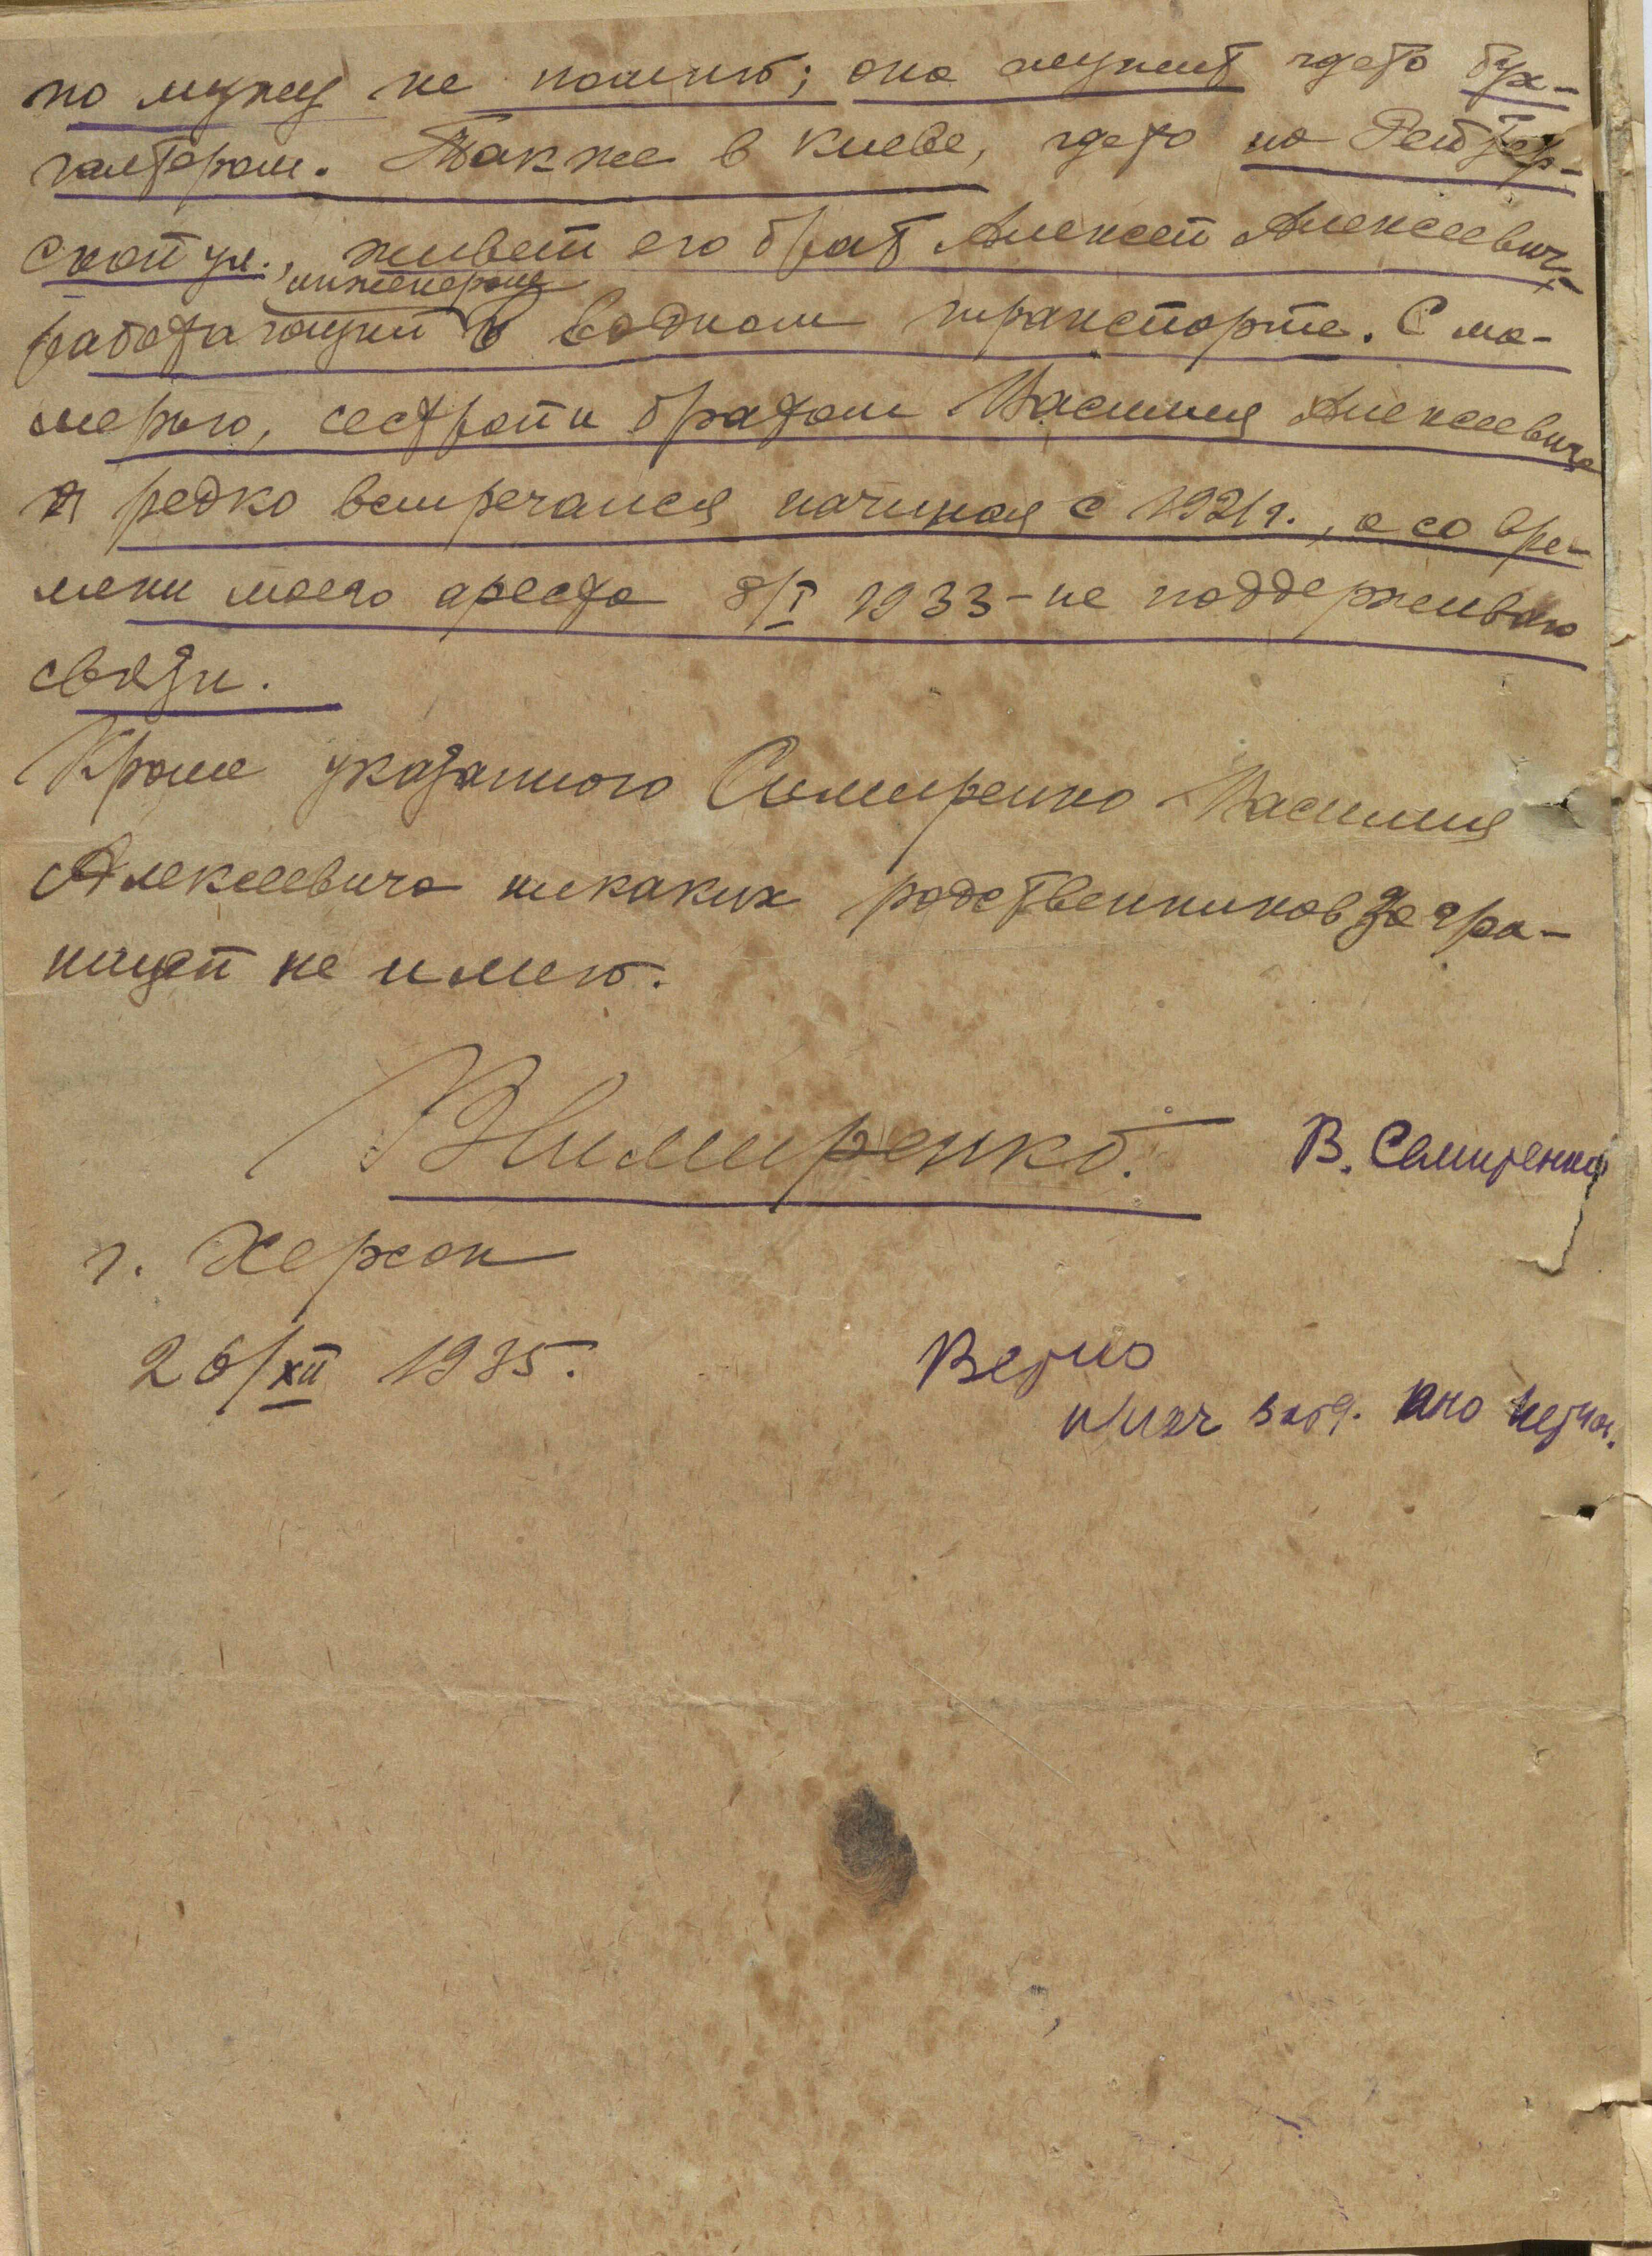 по мужу не помню; она служит где то бух-
галтером. Также в Киеве, где то на Рейтер-
ской ул., живет его брат Алексей Алексеевич,
инженером
работающий в водном транспорте. С ма-
терью, сестрой и братом Василия Алексеевича
я редко встречался начиная с 1921 г., а со вре-
мени моего ареста 8/I 1933 - не поддерживаю
связи.
Кроме указанного Симиренко Василия
Алексеевича никаких родственников за гра-
ницей не имею.
ВСимиренко.
В. Семиренко
г. Херсон
26/XII 1935.
Верно